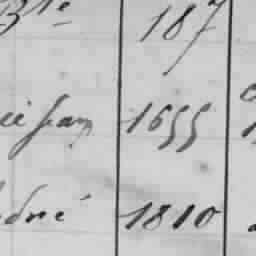 Bte 187
Jean 1655
ndré 1810